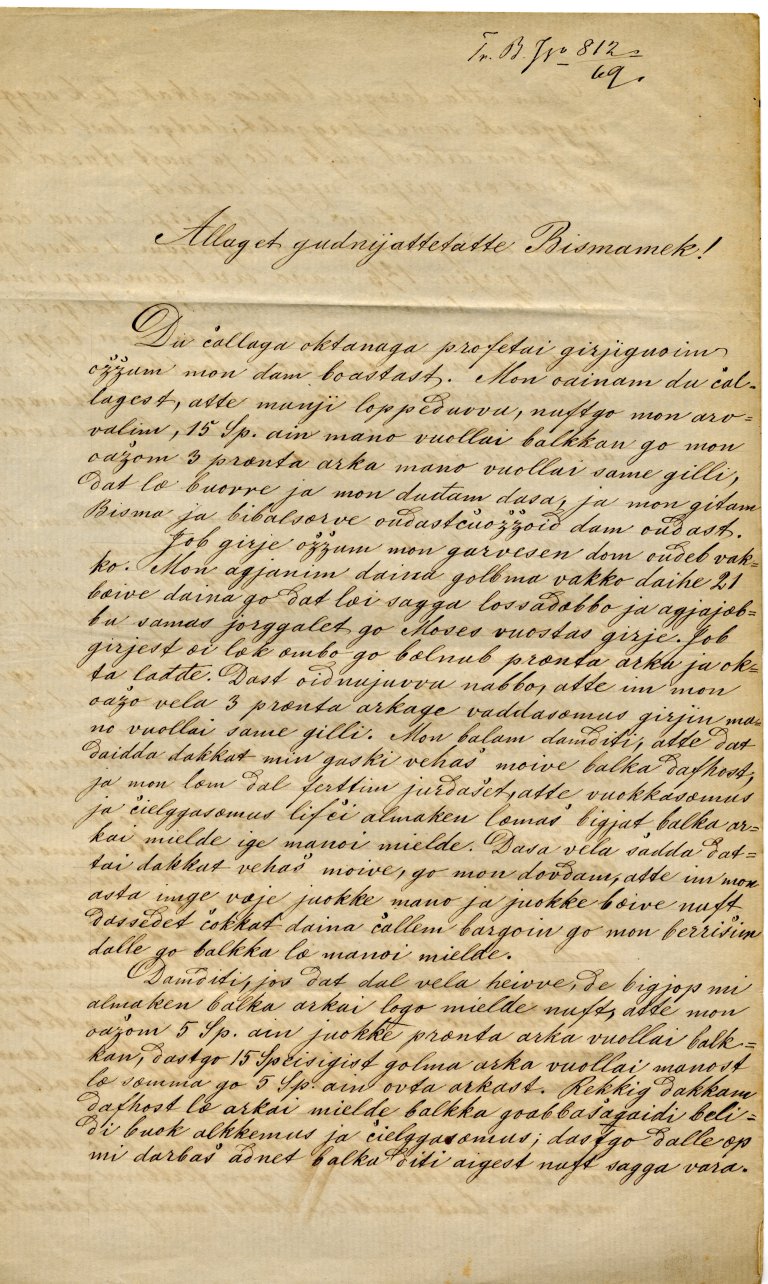 Tr. B. Jno 812
69.
Allaget gudnijattetatte Bismamek!
Du čallaga oktanaga profetai girjiguoim
ožžum mon dam boastast. Mon oainam du čal-
lagest, atte munji loppeduvvu, nuftgo mon arv-
valim, 15 Sp. ain mano vuollai balkkan go mon
oažom 3 prænta arka mano vuollai same gilli,
dat læ buorre ja mon duđam dasa, ja mon gitam
Bisma ja bibalsærve oudastčuožžoid dam oudast.
Job girje ožžum mon garvesen dom oudeb vak-
ko. Mon agjanim daina golbma vakko daihe 21
bæive daina go dat læi sagga lossadæbbo ja agjajæb-
bu samas jorggalet go Moses vuostas girje. Job
girjest æi læk æmbo go bælnub prænta arka ja ok-
ta lađđe. Dast oidnujuvvu nabbo, atte im mon
oažo vela 3 prænta arkage vaddasæmus girjin ma-
no vuollai same gilli. Mon balam damditi, atte dat
daidda dakkat min gaski vehaš moive balka dafhost,
ja mon læm dal ferttim jurdašet, atte vuokkasæmus
ja čielggasæmus lifči almaken læmaš bigjat balka ar-
kai mielde ige manoi mielde. Dasa vela šadda dat-
tai dakkat vehaš moive, go mon dovdam, atte im mon
asta imge væje juokke mano ja juokke bæive nuft
dassedet čokkat daina čallem bargoin go mon berrišim
dalle go balkka læ manoi mielde.
Damditi, jos dat dal vela heivve, de bigjop mi
almaken balka arkai logo mielde nuft, atte mon
oažom 5 Sp. ain juokke prænta arka vuollai balk-
kan, dastgo 15 Speisigist golma arka vuollai manost
læ sæmma go 5 Sp. ain ovta arkast. Rekkig dakkam
dafhost læ arkai mielde balkka goabbašagaidi beli-
di buok alkkemus ja čielggasæmus; dastgo dalle æp
mi darbaš adnet balka diti aigest nuft sagga vara.